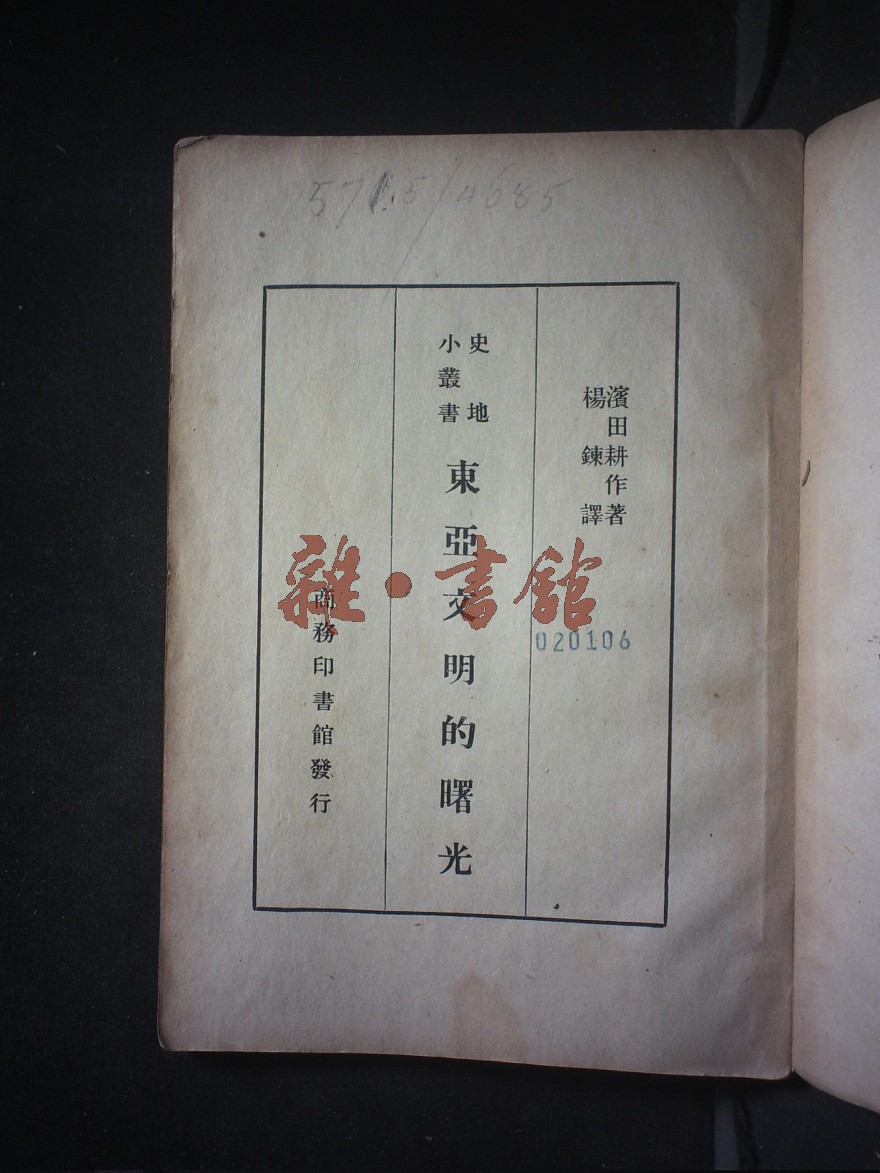 571.5/4685
濱田耕作著
楊鍊譯
史地
小叢書
東亞文明的曙光
商務印書館發行
雜·書館
020106